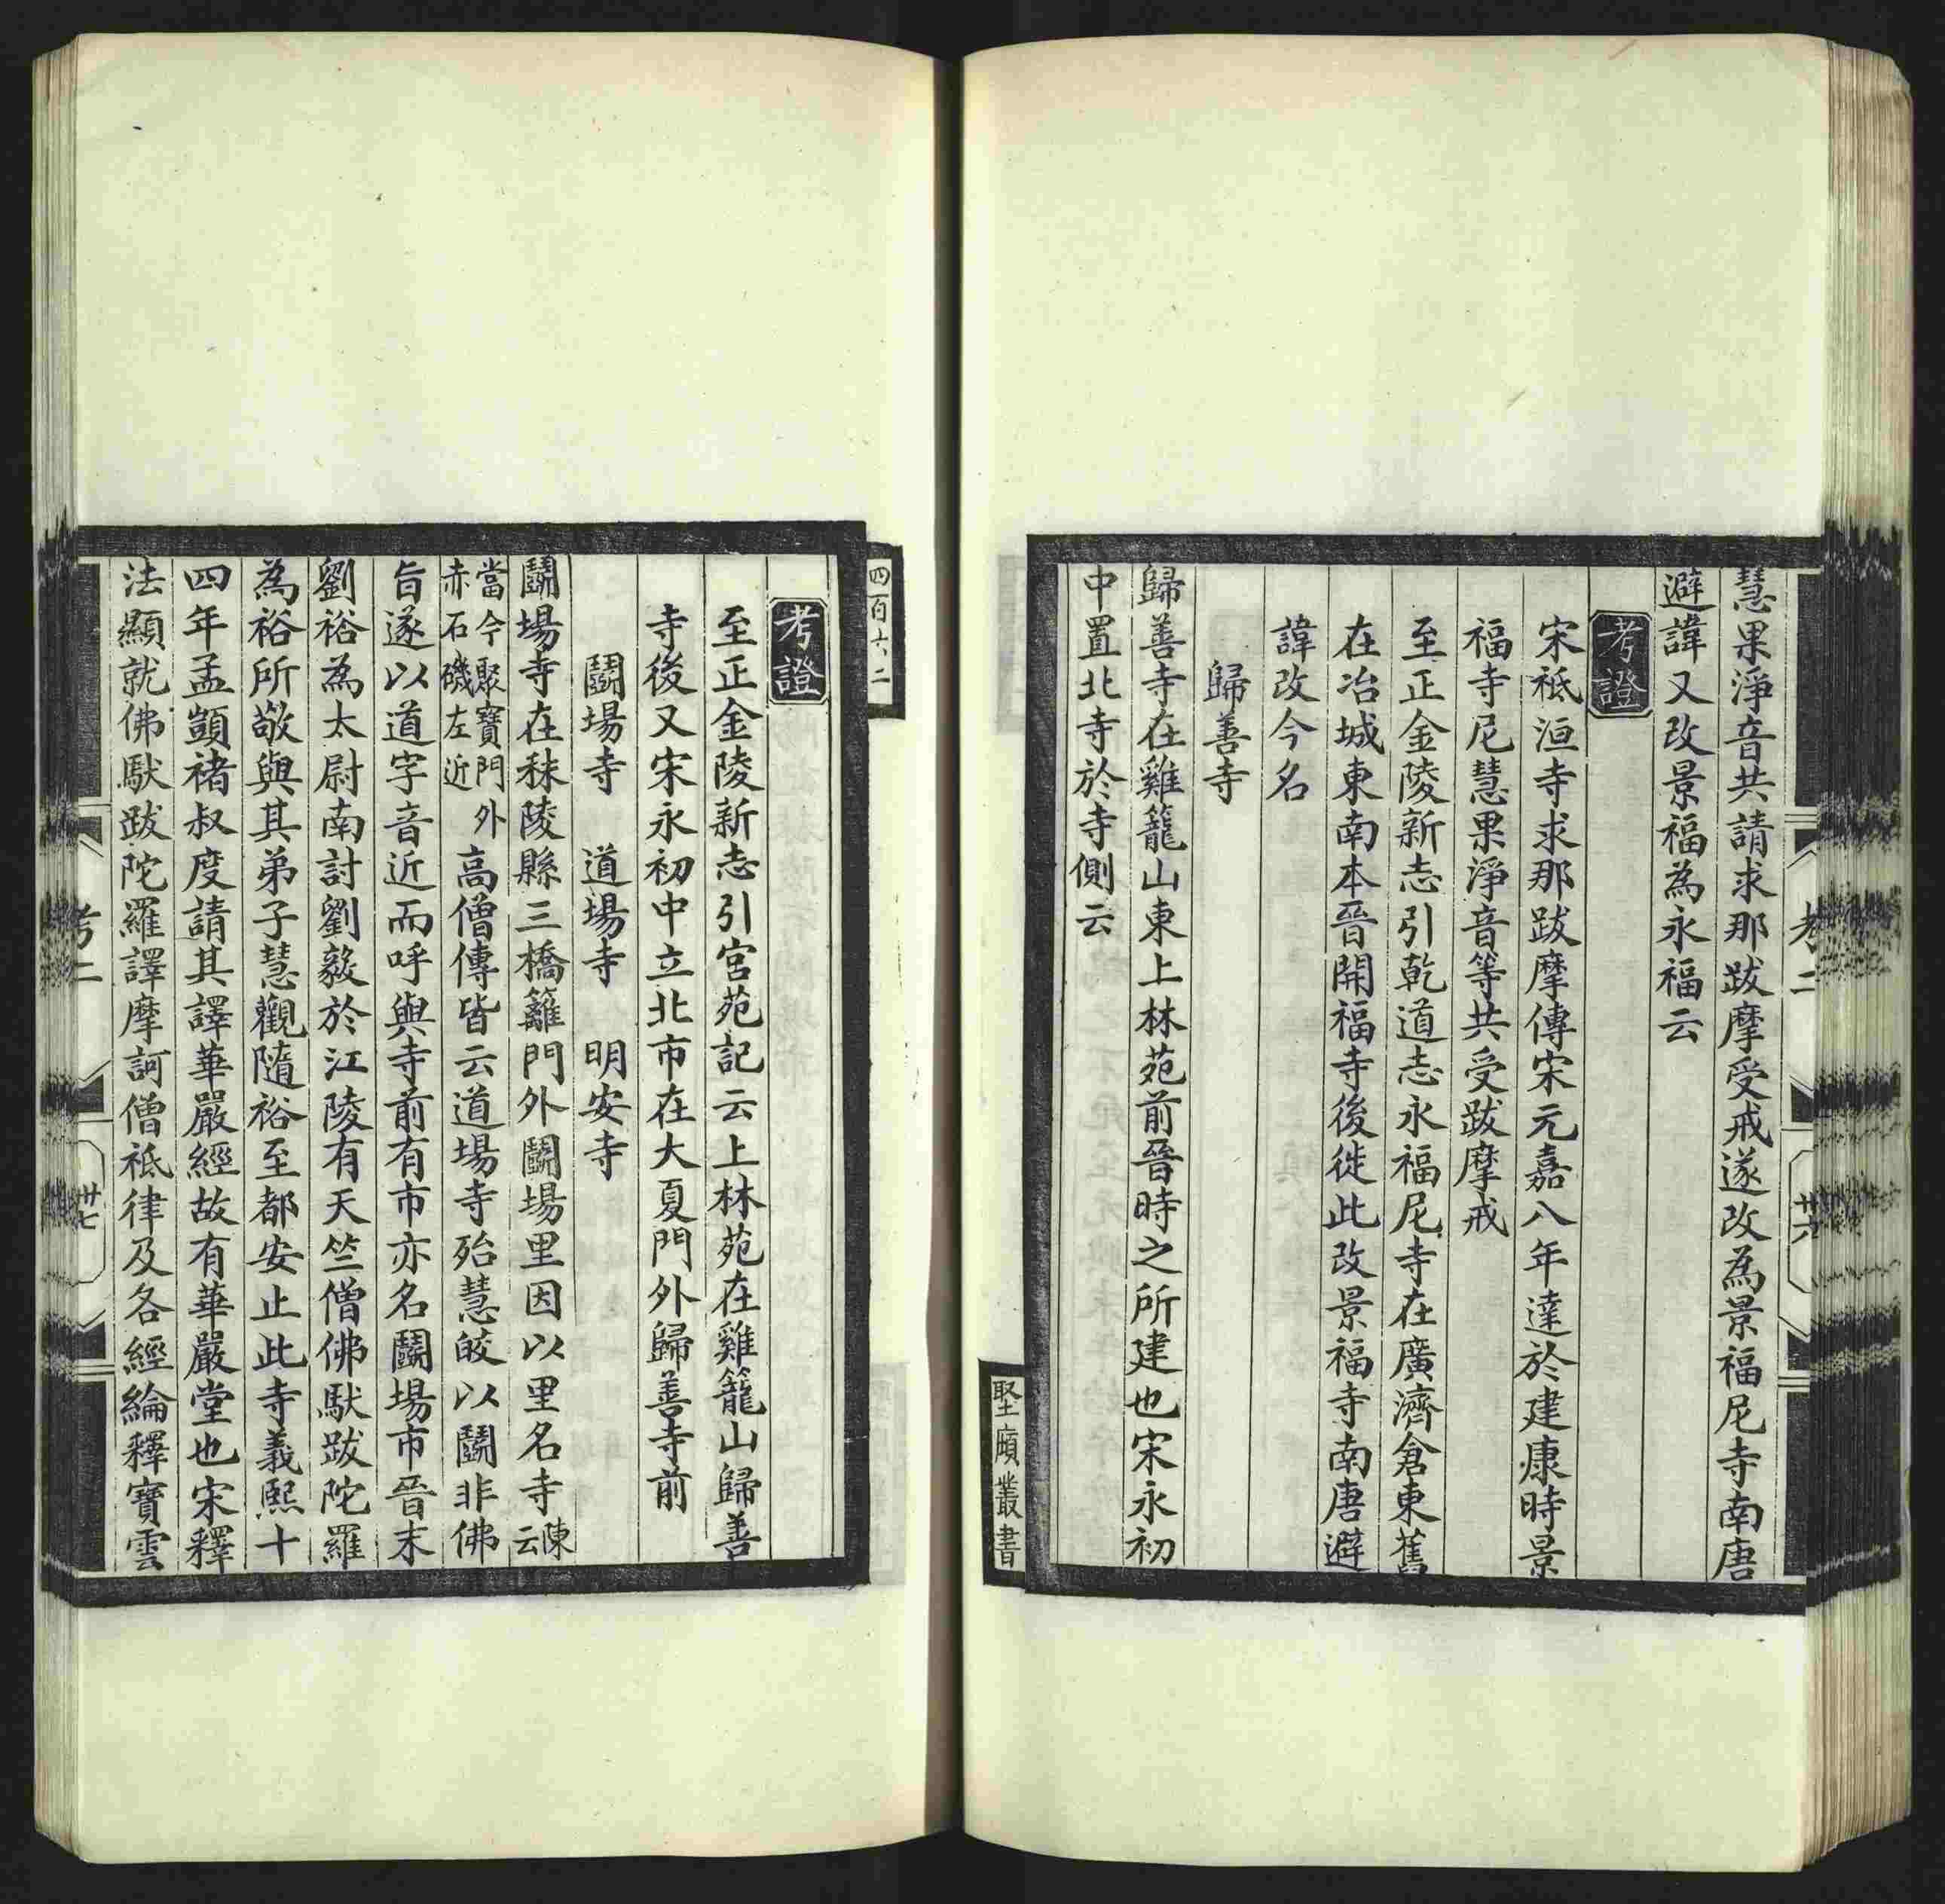 慧果淨音共請求那跋摩受戒遂改為景福尼寺南唐
避諱又改景福為永福云
考證
宋祗洹寺求那跋摩傳宋元嘉八年達於建康時景
福寺尼慧果淨音等共受跋摩戒
至正金陵新志引乾道志永福尼寺在廣濟倉東舊
在冶城東南本晉開福寺後徙此改景福寺南唐避
諱改今名
歸善寺
歸善寺在雞籠山東上林苑前晉時之所建也宋永初
中置北寺於寺側云
考二
廿六
堅㢝叢書
四百六二
考證
至正金陵新志引宮苑記云上林苑在雞籠山歸善
寺後又宋永初中立北市在大夏門外歸善寺前
鬭場寺 道場寺 明安寺
鬭場寺在秣陵縣三橋籬門外鬭場里因以里名寺陳云
當今聚寶門外赤石磯左近高僧傳皆云道場寺殆慧皎以鬭非佛
旨遂以道字音近而呼與寺前有市亦名鬭場市晉末
劉裕為太尉南討劉毅於江陵有天竺僧佛馱跋陀羅
為裕所敬與其弟子慧觀隨裕至都安止此寺義熙十
四年孟顗褚叔度請其譯華嚴經故有華嚴堂也宋釋
法顯就佛馱跋陀羅譯摩訶僧祗律及各經綸釋寶雲
考二
廿七